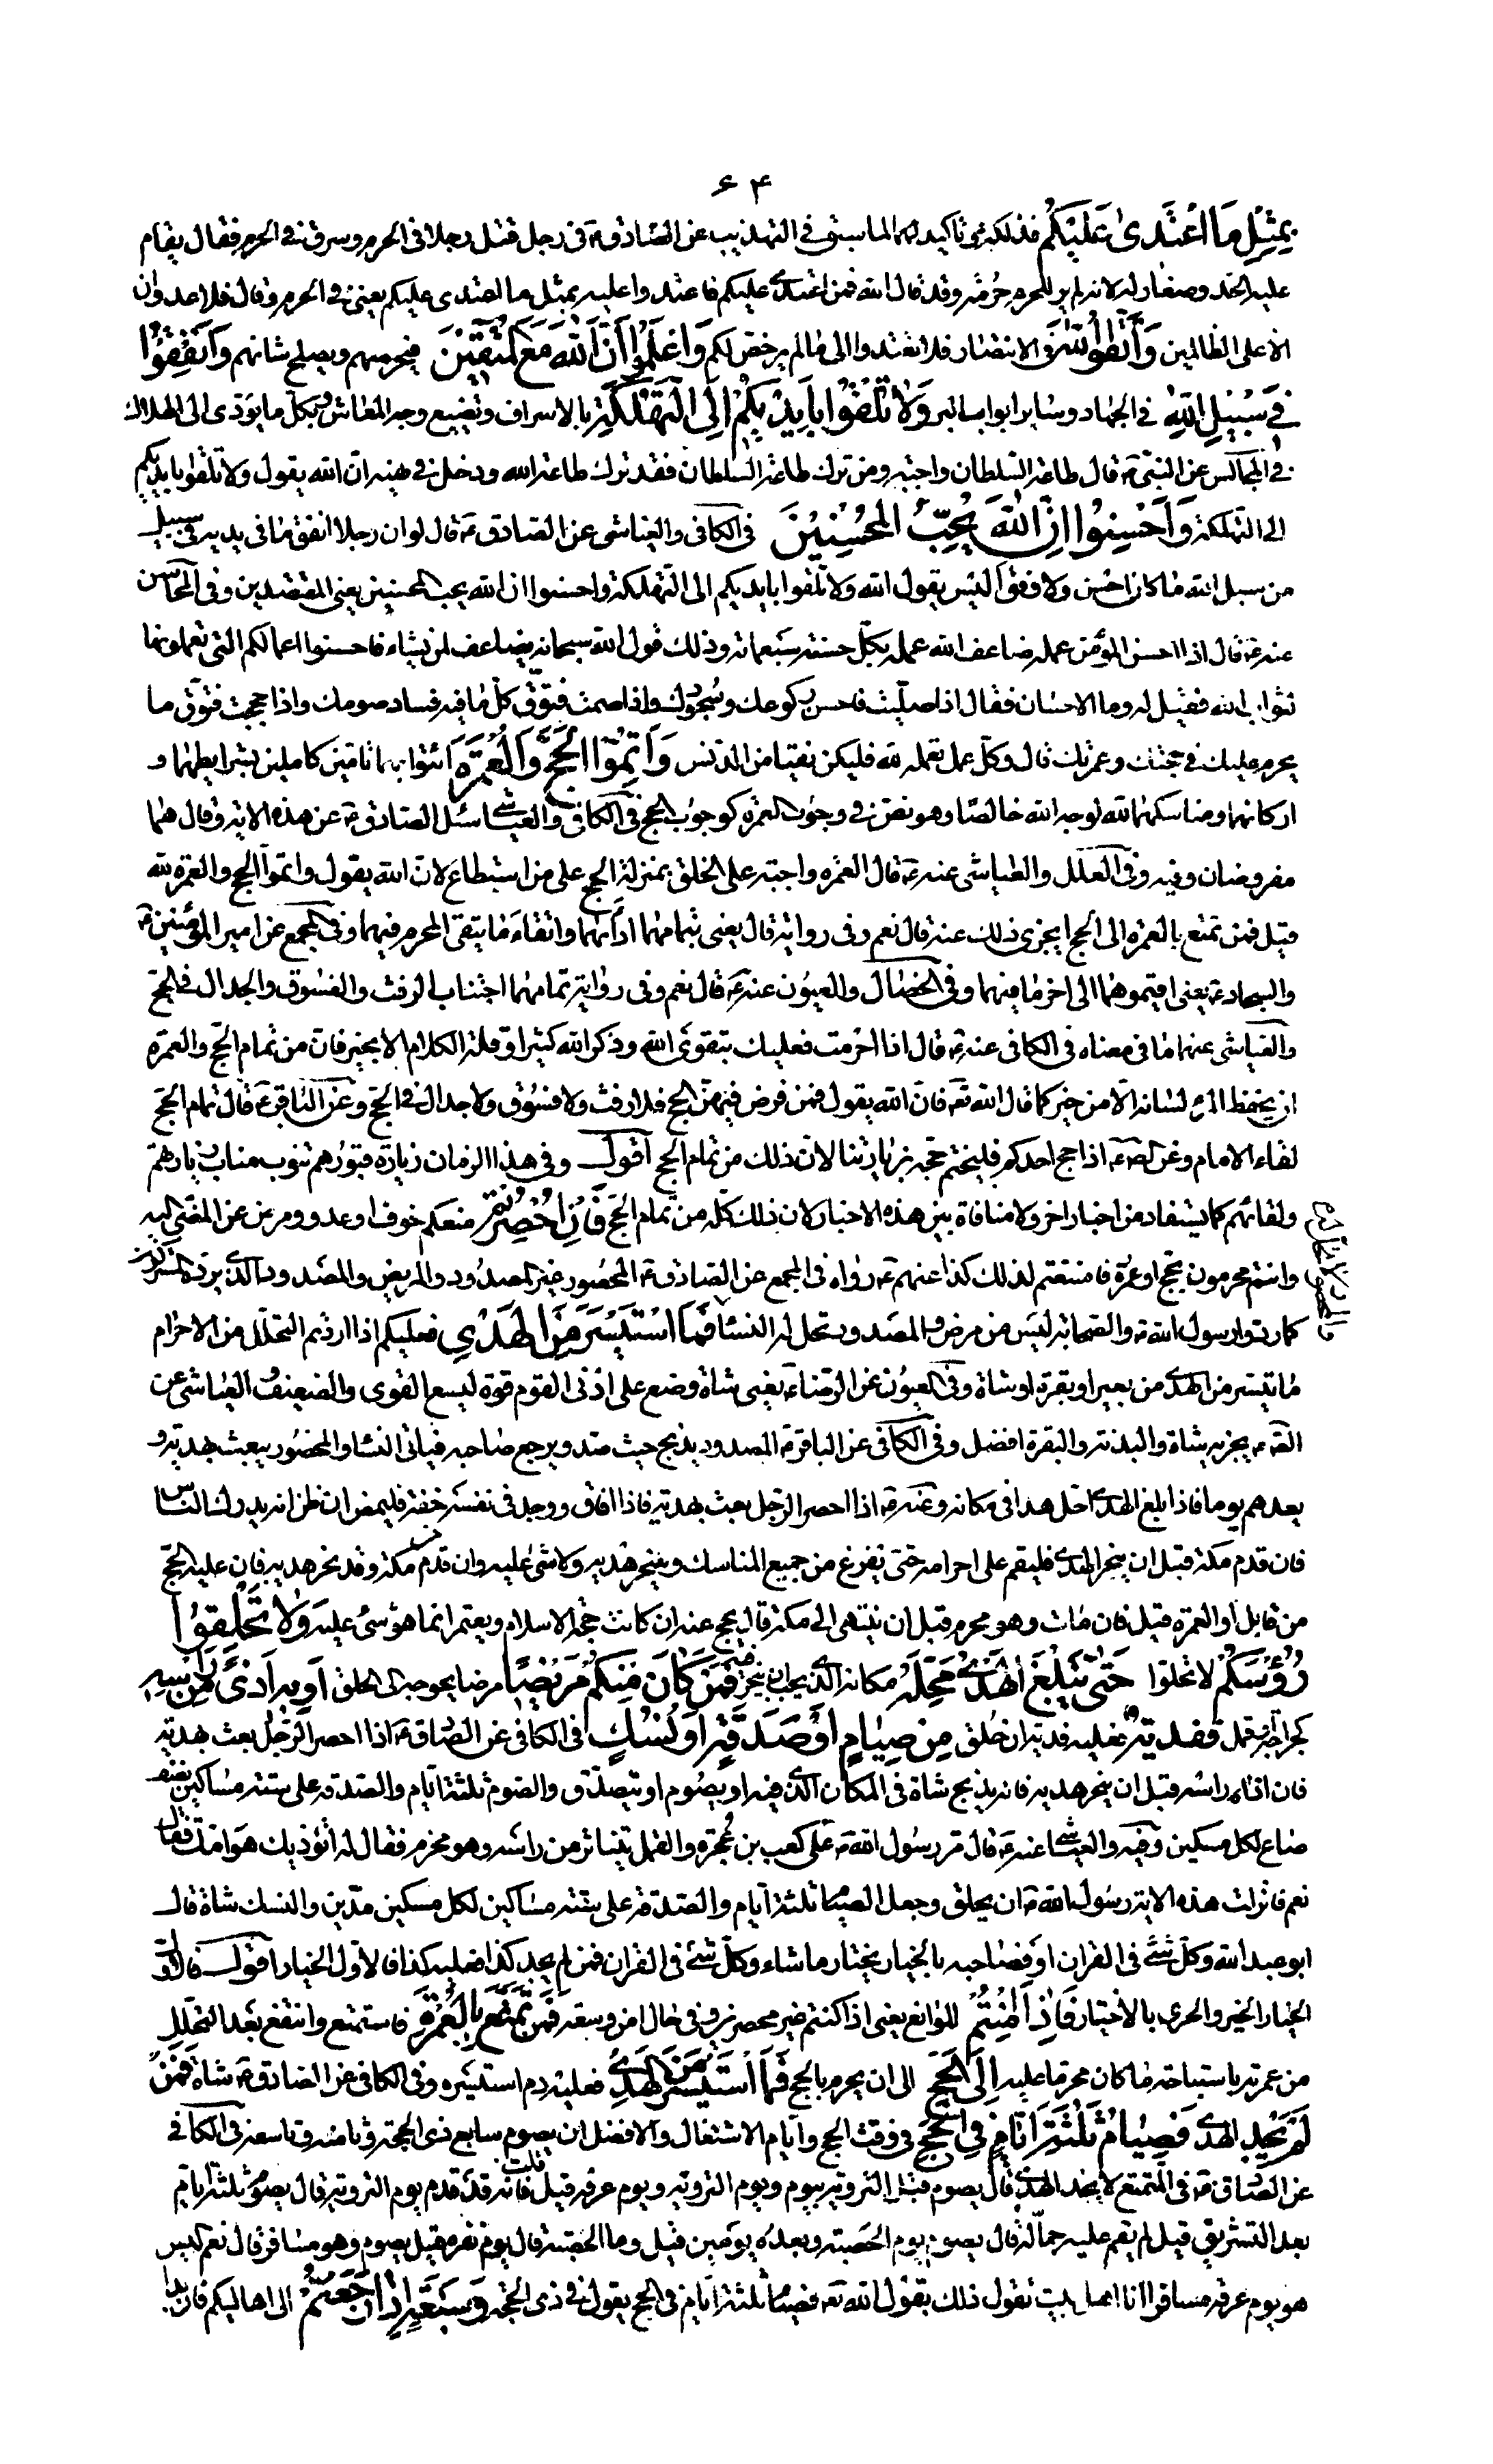 ۶۴
بِمِثْلِ مَا اعْتَدىٰ عَلَيْكُمْ فذلكة وتأكيد لما سبق في التهذيب عن الصادق ع في رجل قتل رجلا في الحرم وسرق في الحرم فقال يقام
عليه الحد وصغار له لانه لم ير للحرم حرمة وقد قال الله فمن اعتدى عليكم فاعتدوا عليه بمثل ما اعتدى عليكم يعني في الحرم وقال فلا عدوان
الا على الظالمين وَاتَّقُوا اللهَ في الانتصار فلا تعتدوا الى ما لم يرخص لكم وَاعْلَمُوا أَنَّ اللهَ مَعَ الْمُتَّقِينَ فيحرسهم ويصلح شانهم وَأَنْفِقُوا
فِي سَبِيلِ اللهِ في الجهاد وساير ابواب البر وَلا تُلْقُوا بِأَيْدِيكُمْ إِلَى التَّهْلُكَةِ بالاسراف وتضييع وجه المعاش وبكل ما يؤدي الى الهلاك
في المجالس عن النبي ص قال طاعة السلطان واجبة ومن ترك طاعة السلطان فقد ترك طاعة الله ودخل في نهيه ان الله يقول ولا تلقوا بايديكم
الى التهلكة وَأَحْسِنُوا إِنَّ اللهَ يُحِبُّ الْمُحْسِنِينَ في الكافي والعياشي عن الصادق ع قال لو ان رجلا انفق ما في يديه في سبيل
من سبل الله ما كان احسن ولا وفق اليس يقول الله ولا تلقوا بايديكم الى التهلكة واحسنوا ان الله يحب المحسنين يعني المقتصدين وفي المحاسن
عنه ع قال اذا احسن المؤمن عمله ضاعف الله عمله بكل حسنة سبعمائة وذلك قول الله سبحانه يضاعف لمن يشاء فاحسنوا اعمالكم التي تعملونها
لثواب الله فقيل له وما الاحسان فقال اذا صليت فاحسن ركوعك وسجودك واذا صمت فتوق كل ما فيه فساد صومك واذا حججت فتوق ما
يحرم عليك في حجتك وعمرتك قال وكل عمل تعمله لله فليكن نقيا من الدنس وَأَتِمُّوا الْحَجَّ وَالْعُمْرَةَ ائتوا بهما تامين كاملين بشرايطهما و
اركانهما ومناسكهما لله لوجه الله خالصا وهو نص في وجوب العمرة كوجوب الحج في الكافي والعياشي سئل الصادق ع عن هذه الاية فقال هما
مفروضان وفيه وفي العلل والعياشي عنه ع قال العمرة واجبة على الخلق بمنزلة الحج على من استطاع لان الله يقول واتموا الحج والعمرة لله
قيل فمن تمتع بالعمرة الى الحج ايجزي ذلك عنه قال نعم وفي رواية قال يعني بتمامهما اداءهما واتقاء ما يتقى المحرم فيهما وفي المجمع عن امير المؤمنين ع
والسجاد ع يعني اقيموهما الى اخر ما فيهما وفي الخصال والعيون عنه ع قال نعم وفي رواية تمامهما اجتناب الرفث والفسوق والجدال في الحج
والعياشي عنهما ما في معناه في الكافي عنه ع قال اذا احرمت فعليك بتقوى الله وذكر الله كثيرا وقلة الكلام الا بخير فان من تمام الحج والعمرة
ان يحفظ المرء لسانه الا من خير كما قال الله تعه فان الله يقول فمن فرض فيهن الحج فلا رفث ولا فسوق ولا جدال في الحج وعن الباقر ع قال تمام الحج
لقاء الامام وعن الصه ع اذا حج احدكم فليختم حجه بزيارتنا لان ذلك من تمام الحج اقول وفي هذا الزمان زيارة قبورهم تنوب مناب زيارتهم
ولقائهم كما يستفاد من اخبار اخر ولا منافاة بين هذه الاخبار لان ذلك كله من تمام الحج فَإِنْ أُحْصِرْتُمْ منعكم خوف او عدو ومرض عن المضي اليه
وانتم محرمون بحج او عمرة فامتنعتم لذلك كذا عنهم ع رواه في المجمع عن الصادق ع المحصور غير المصدود والمريض والمصدود الذي يرده المشركون
كما ردوا رسول الله ص والصحابة ليس من مرض والمصدود تحل له النساء فَمَا اسْتَيْسَرَ مِنَ الْهَدْيِ فعليكم اذا اردتم التحلل من الاحرام
ما تيسر من الهدي من بعير او بقرة او شاة وفي العيون عن الرضا ع يعني شاة وضع على ادنى القوم قوة ليسع القوي والضعيف العياشي عن
الصه ع يجزيه شاة والبدنة والبقرة افضل وفي الكافي عن الباقر ع المصدود يذبح حيث صد ويرجع صاحبه فياتي النساء والمحصور يبعث بهديه و
يعدهم يوما فاذا بلغ الهدي احل هذا في مكانه وعنه ع اذا احصر الرجل بعث بهديه فاذا افاق ووجد في نفسه خفة فليمض ان ظن انه يدرك الناس
فان قدم مكة قبل ان ينحر الهدي فليقم على احرامه حتى يفرغ من جميع المناسك وينحر هديه ولا شئ عليه وان قدم مكة وقد نحر هديه فان عليه الحج
من قابل او العمرة قيل فان مات وهو محرم قبل ان ينتهي الى مكة قال يحج عنه ان كانت حجة الاسلام ويعتمر انما هو شئ عليه وَلا تَحْلِقُوا
رُؤُسَكُمْ لا تحلوا حَتّىٰ يَبْلُغَ الْهَدْيُ مَحِلَّهُ مكانه الذي يجب ان ينحر فيه فَمَنْ كَانَ مِنْكُمْ مَرِيضًا مرضا يحوجه الى الحلق أَوْ بِهِ أَذىً مِنْ رَأْسِهِ
كجراحة وقمل فَفِدْيَةٌ فعليه فدية ان حلق مِنْ صِيَامٍ أَوْ صَدَقَةٍ أَوْ نُسُكٍ في الكافي عن الصادق ع اذا احصر الرجل بعث بهديه
فان اذاه راسه قبل ان ينحر هديه فانه يذبح شاة في المكان الذي فيه او يصوم او يتصدق والصوم ثلثة ايام والصدقة على ستة مساكين نصف
صاع لكل مسكين وفيه والعياشي عنه ع قال مر رسول الله ص على كعب بن عجرة والقمل يتناثر من راسه وهو محرم فقال له اتؤذيك هوامك فقال
نعم فانزلت هذه الاية رسول الله ص ان يحلق وجعل الصيام ثلثة ايام والصدقة على ستة مساكين لكل مسكين مدين والنسك شاة قال
ابو عبد الله وكل شئ في القران او فصاحبه بالخيار يختار ما شاء وكل شئ في القران فمن لم يجد كذا فعليه كذا فالاولى الخيار اقول فالاولى
الخيار الخير والحري بالاختيار فَإِذَا أَمِنْتُمْ الموانع يعني اذا كنتم غير محصرين وفي حال امن وسعة فَمَنْ تَمَتَّعَ بِالْعُمْرَةِ فاستمتع وانتفع بعد التحلل
من عمرته باستباحة ما كان محرما عليه إِلَى الْحَجِّ الى ان يحرم بالحج فَمَا اسْتَيْسَرَ مِنَ الْهَدْيِ فعليه دم استيسره وفي الكافي عن الصادق ع شاة فَمَنْ
لَمْ يَجِدْ الهدي فَصِيَامُ ثَلٰثَةِ أَيَّامٍ فِي الْحَجِّ في وقت الحج وايام الاشتغال والافضل ان يصوم سابع ذي الحجة وثامنه وتاسعه في الكافي
عن الصادق ع في المتمتع لا يجد الهدي قال يصوم قبل التروية بيوم ويوم التروية ويوم عرفة قيل فانه قد قدم يوم التروية قال يصوم ثلثة ايام
بعد التشريق قيل لم يقم عليه جماله قال يصوم يوم الحصبة وبعده يومين قيل وما الحصبة قال يوم نفره قيل يصوم وهو مسافر قال نعم اليس
هو يوم عرفة مسافرا انا اهل بيت نقول ذلك بقول الله تعه فصيام ثلثة ايام في الحج يقول في ذي الحجة وَسَبْعَةٍ إِذَا رَجَعْتُمْ الى اهاليكم فان بدا